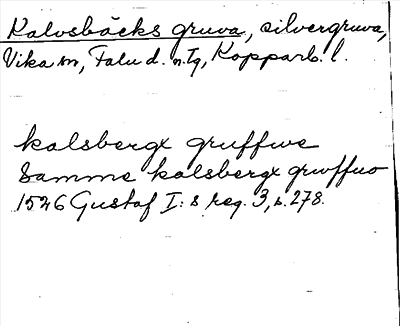 Kalvsbäcks gruva, silvergruva,
Vika sn, Falu d. n. Tg, Kopparb. l.
kalsbergx gruffwe
Samme kalsbergx grwffuo
1526 Gustaf I:s reg. 3, s. 278.